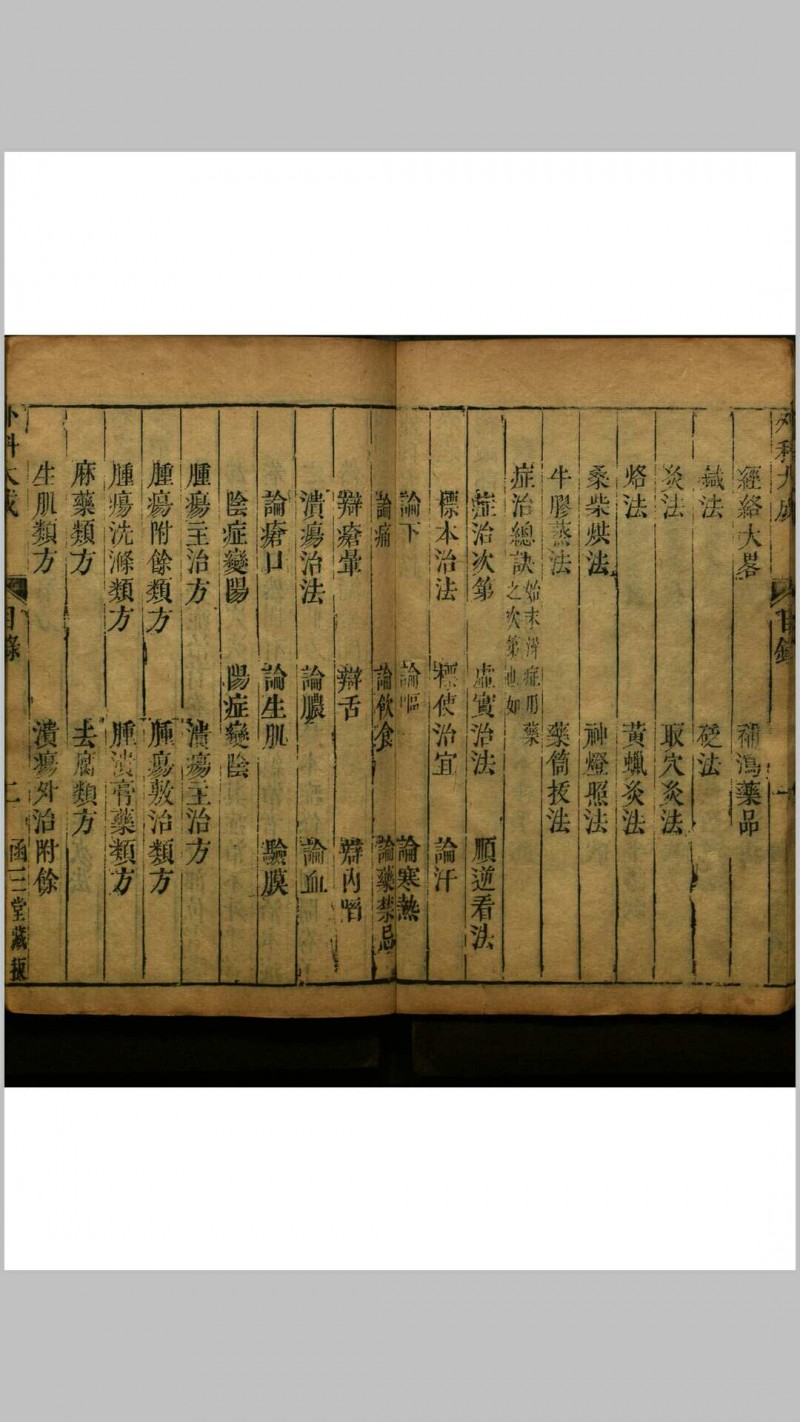 外科大成 目錄 一
經絡大畧 補瀉藥品
鍼法 砭法
灸法 取穴灸法
烙法 黃蠟灸法
桑柴烘法 神燈照法
牛膠蒸法 藥筒拔法
症治總訣 始末 症用藥之次第也如
症治次第 虛實治法 順逆看法
標本治法 標使治宜 論汗
論下 論嘔 論寒熱
論痛 論飲食 論藥禁忌
辯瘡暈 辯舌 辯內
潰瘍治法 論膿 論血
論瘡口 論生肌 驗膜
陰症變陽 陽症變陰
腫瘍主治方 潰瘍主治方
腫瘍附餘類方 腫瘍敷治類方
腫瘍洗滌類方 腫潰膏藥類方
麻藥類方 去腐類方
生肌類方 潰瘍外治附餘
外科大成 目錄 二 函三堂藏板